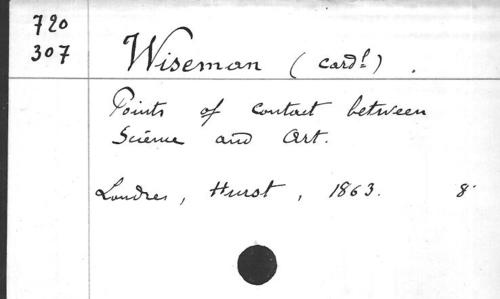 720
307
Wiseman (cardl) .
Points of contact between
Science and Art.
Londres, Hurst, 1863. 8°